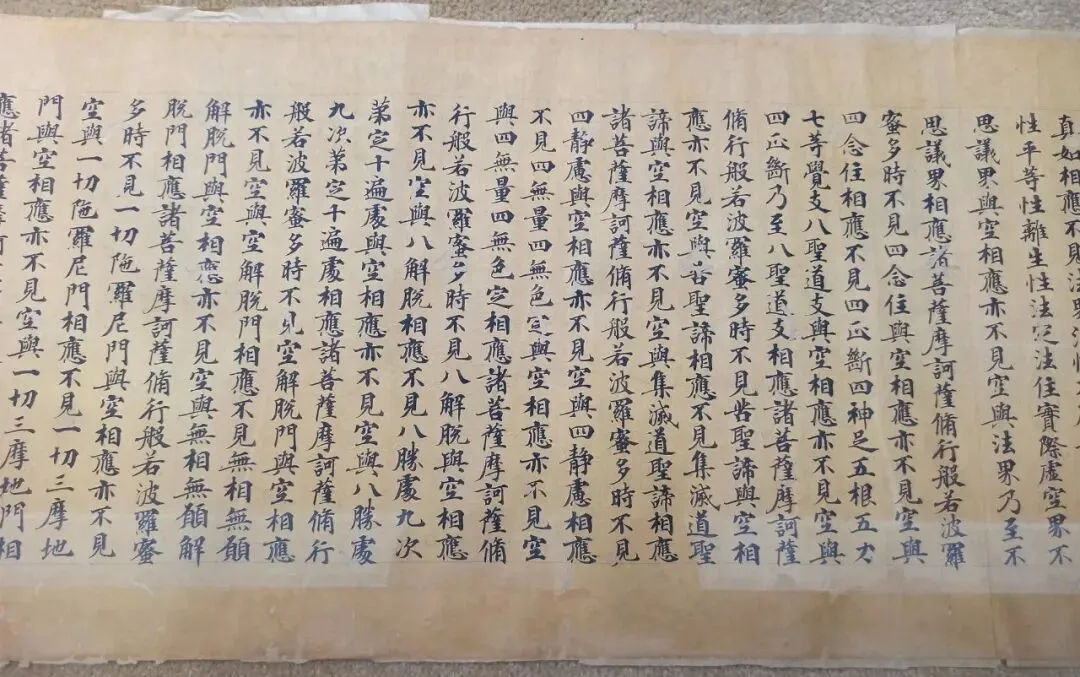 真如相應不見法界法性不
性平等性離生性法定法住實際虛空界不
思議界與空相應亦不見空與法界乃至不
思議界相應諸菩薩摩訶薩脩行般若波羅
蜜多時不見四念住與空相應亦不見空與
四念住相應不見四正斷四神足五根五力
七等覺支八聖道支與空相應亦不見空與
四正斷乃至八聖道支相應諸菩薩摩訶薩
脩行般若波羅蜜多時不見苦聖諦與空相
應亦不見空與苦聖諦相應不見集滅道聖
諦與空相應亦不見空與集滅道聖諦相應
諸菩薩摩訶薩脩行般若波羅蜜多時不見
四靜慮與空相應亦不見空與四靜慮相應
不見四無量四無色定與空相應亦不見空
與四無量四無色定相應諸菩薩摩訶薩脩
行般若波羅蜜多時不見八解脫與空相應
亦不見空與八解脫相應不見八勝處九次
第定十遍處與空相應亦不見空與八勝處
九次第定十遍處相應諸菩薩摩訶薩脩行
般若波羅蜜多時不見空解脫門與空相應
亦不見空與空解脫門相應不見無相無願
解脫門與空相應亦不見空與無相無願解
脫門相應諸菩薩摩訶薩脩行般若波羅蜜
多時不見一切陁羅尼門與空相應亦不見
空與一切陁羅尼門相應不見一切三摩地
門與空相應亦不見空與一切三摩地門相
應諸菩薩摩訶